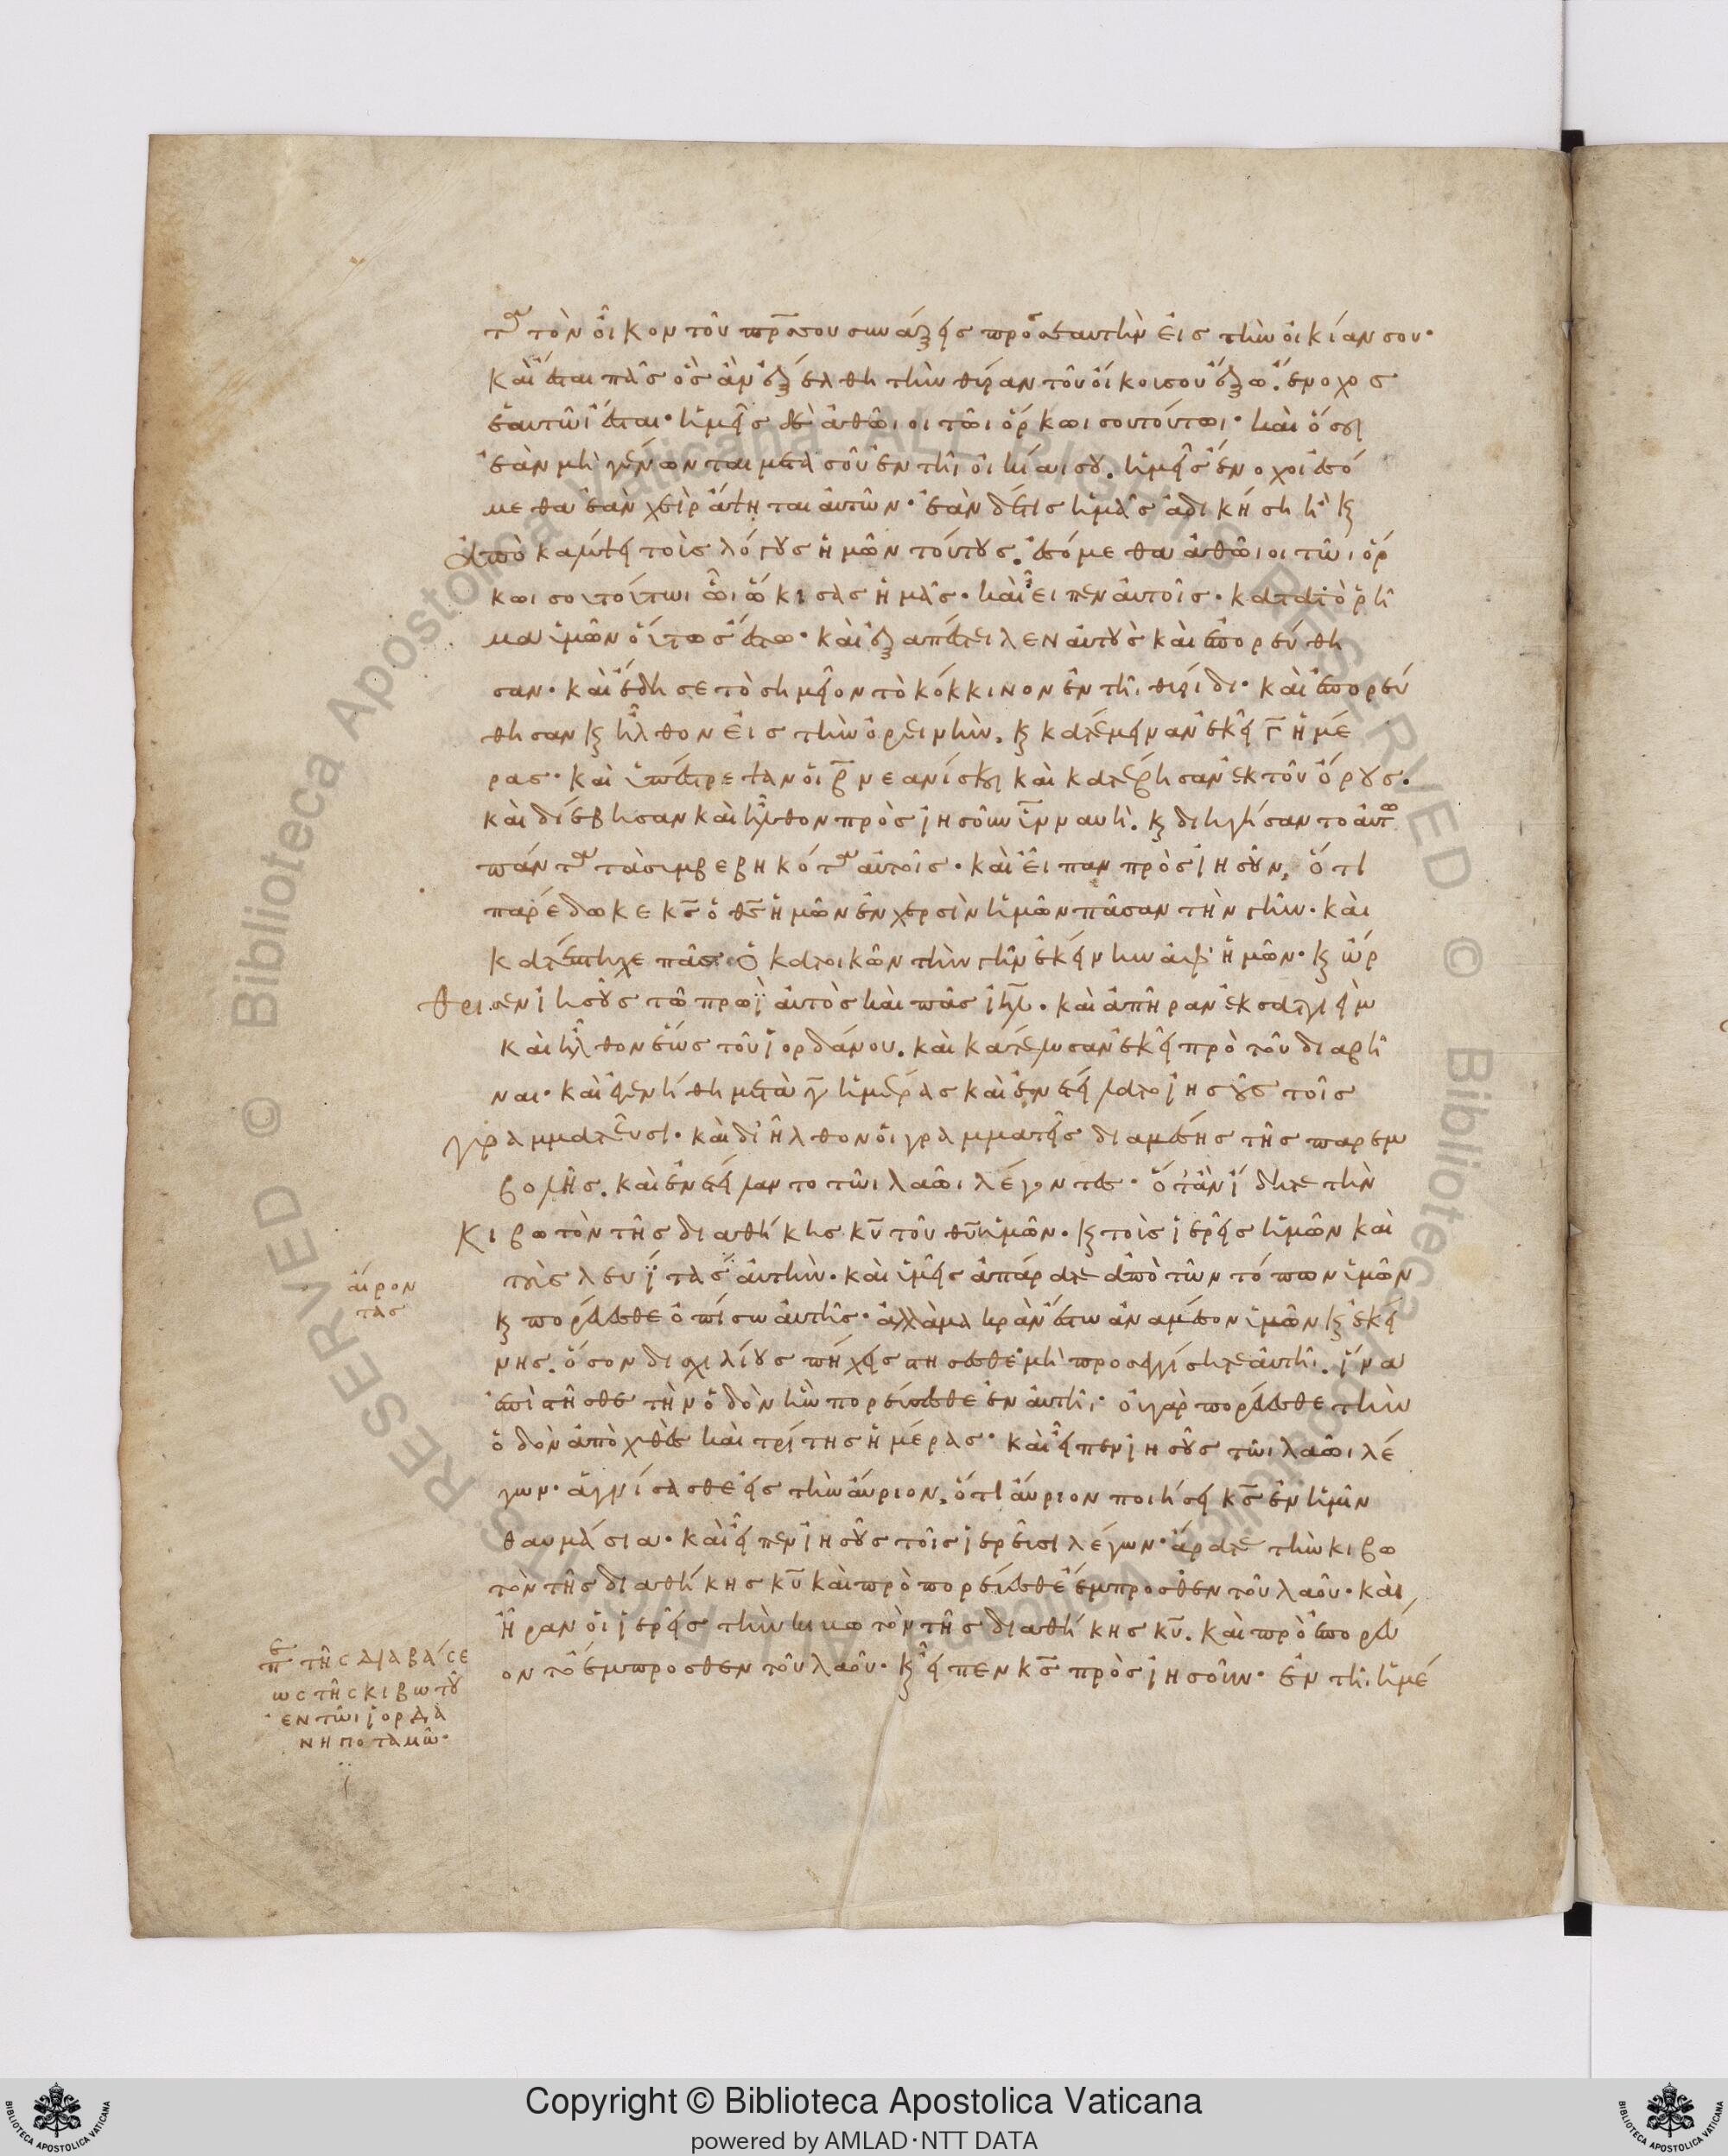 τα τὸν οἶκον τοῦ πρσ σου συνάξεις πρὸσ εαυτὴν εἰς τὴν οἰκίαν σου·
καὶ ἔσται πᾶς ὃς ἂν ἐξέλθη τὴν θύραν τοῦ οἴκου σου ἔξω, ἔνοχος
ἑαυτῶι ἔσται· ἡμεῖς δὲ ἀθῶιοι τῶι ὅρκωι σου τούτωι· καὶ ὅσοι
ἐὰν μὴ γένωνται μετὰ σοῦ ἐν τῆι οἰκίαι σου. ἡμεῖς ἔνοχοι ἐσό
μεθα ἐὰν χεὶρ ἅψηται αὐτῶν· ἐὰν δέ τις ἡμᾶς ἀδικήση ἢ καὶ
ἀποκαλύψη τοὺς λόγους ἡμῶν τούτους. ἐσόμεθα ἀθῶιοι τῶι ὅρ
κωι σου τούτωι ὧι ὥρκισας ἡμᾶς. καὶ εἶπεν αὐτοῖς· κατὰ τὸ ῥῆ
μα ὑμῶν οὕτως ἔστω· καὶ ἐξαπέστειλεν αὐτοὺς καὶ ἐπορεύθη
σαν· καὶ ἔδησε τὸ σημεῖον τὸ κόκκινον ἐν τῆι θυρίδι· καὶ ἐπορεύ
θησαν καὶ ἦλθον εἰς τὴν ὀρεινὴν. καὶ κατέμειναν ἐκεῖ γ ἡμέ
ρας· καὶ ὑπέστρεψαν οἱ β νεανίσκοι καὶ κατέβησαν ἐκ τοῦ ὄρους.
καὶ διέβησαν καὶ ἦλθον πρὸς ἰησοῦν υν ναυὴ. καὶ διηγήσαντο αὐτῶ
πάντα τὰ συμβεβηκότα αὐτοῖς· καὶ εἶπαν πρὸς ἰησοῦν, ὅτι
παρέδωκε κσ ὁ θσ ἡμῶν ἐν χερσὶν ἡμῶν πᾶσαν τὴν γῆν· καὶ
κατέπτηχε πᾶς ὁ κατοικῶν τὴν γῆν ἐκείνην ἀφ' ἡμῶν· καὶ ὤρ
θρισεν ἰησοῦς τὸ πρωῒ αὐτὸς καὶ πᾶς ιηλ. καὶ ἀπῆραν ἐκ σαττεὶν
καὶ ἦλθον ἕως τοῦ ἰορδάνου. καὶ κατέλυσαν ἐκεῖ πρὸ τοῦ διαβῆ
ναι· καὶ ἐγενήθη μετὰ γ ἡμέρας καὶ ἐνετείλατο ἰησοῦς τοῖς
γραμματεῦσι· καὶ διῆλθον οἱ γραμματεῖς διὰ μέσης τῆς παρεμ
βολῆς. καὶ ἐνετείλαντο τῶι λαῶι λέγοντες· ὅταν ἴδητε τὴν
κιβωτὸν τῆς διαθήκης κυ τοῦ θυ ἡμῶν· καὶ τοὺς ἱερεῖς ἡμῶν καὶ
τοὺς λευΐτας αὐτὴν· καὶ ὑμεῖς ἀπάρατε ἀπὸ τῶν τόπων ὑμῶν
καὶ πορεύεσθε ὀπίσω αὐτῆς· ἀλλὰ μακρὰν ἔστω ἀναμέσον ὑμῶν καὶ ἐκεί
νης. ὅσον δισχιλίους πήχεις στήσεσθε· μὴ προσεγγίσητε αὐτῆι. ἵνα
ἐπίστησθε τὴν ὁδὸν ἣν πορεύεσθε ἐν αὐτῆι· οὐ γὰρ πορεύεσθε τὴν
ὁδὸν ἀπὸ χθὲς καὶ τρίτης ἡμέρας· καὶ εἶπεν ἰησοῦς τῶι λαῶι λέ
γων· ἁγνίσασθε εἰς τὴν αὔριον, ὅτι αὔριον ποιήσει κσ ἐν ἡμῖν
θαυμάσια· καὶ εἶπεν ἰησοῦς τοῖς ἱερεῦσι λέγων· ἄρατε τὴν κιβω
τὸν τῆς διαθήκης κυ καὶ προπορεύεσθε ἔμπροσθεν τοῦ λαοῦ· καὶ
ἦραν οἱ ἱερεῖς τὴν κιβωτὸν τῆς διαθήκης κυ. καὶ προεπορεύ
οντο ἔμπροσθεν τοῦ λαοῦ· καὶ εἶπεν κσ πρὸς ἰησοῦν· ἐν τῆι ἡμέ
αἴρον
τας
τῆς διαβάσε
ως τῆς κιβωτοῦ
ἐν τῶι ἰορδά
νη ποταμῶ·
© Biblioteca Apostolica Vaticana ALL RIGHTS RESERVED
Copyright © Biblioteca Apostolica Vaticana
powered by AMLAD·NTT DATA
BIBLIOTECA APOSTOLICA VATICANA
BIBLIOTECA APOSTOLICA VATICANA